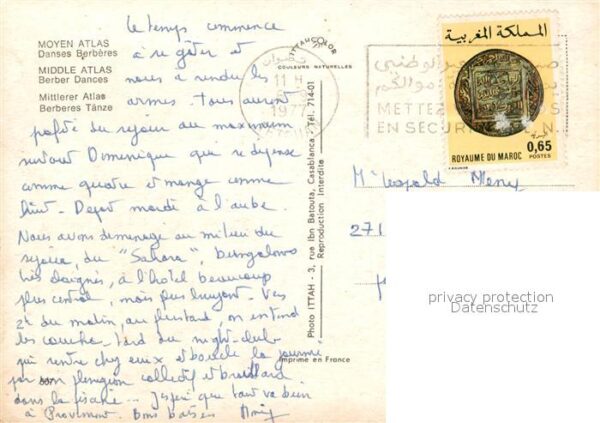 MOYEN ATLAS
Danses Berbères
MIDDLE ATLAS
Berber Dances
Mittlerer Atlas
Berberes Tänze
Le temps commence
à se gâter et
nous à rendre les
armes. Tous auront
profité du séjour au maximum
surtout Dominique qui se dépense
comme quatre et mange comme
huit. Départ mardi à l'aube
Nous avons déménagé au milieu du
séjour, du "Sahara", bungalows
très éloignés, à l'hôtel beaucoup
plus central, mais plus bruyant. Vers
2h du matin, au plus tard, on entend
les couche-tard du night-club
qui rentre chez eux et boucle la journée
par son plongeon collectif et braillard
dans la piscine... J'espère que tout va bien
à Bons baisers
ITTAHCOLOR
COULEURS NATURELLES
11 H
1977
Photo ITTAH - 3, rue Ibn Batouta, Casablanca - Tél. 714-01
Reproduction Interdite
Imprimé en France
METTEZ
EN SÉCURI
المملكة المغربية
0,65
ROYAUME DU MAROC POSTES
Léopold
271
privacy protection
Datenschutz